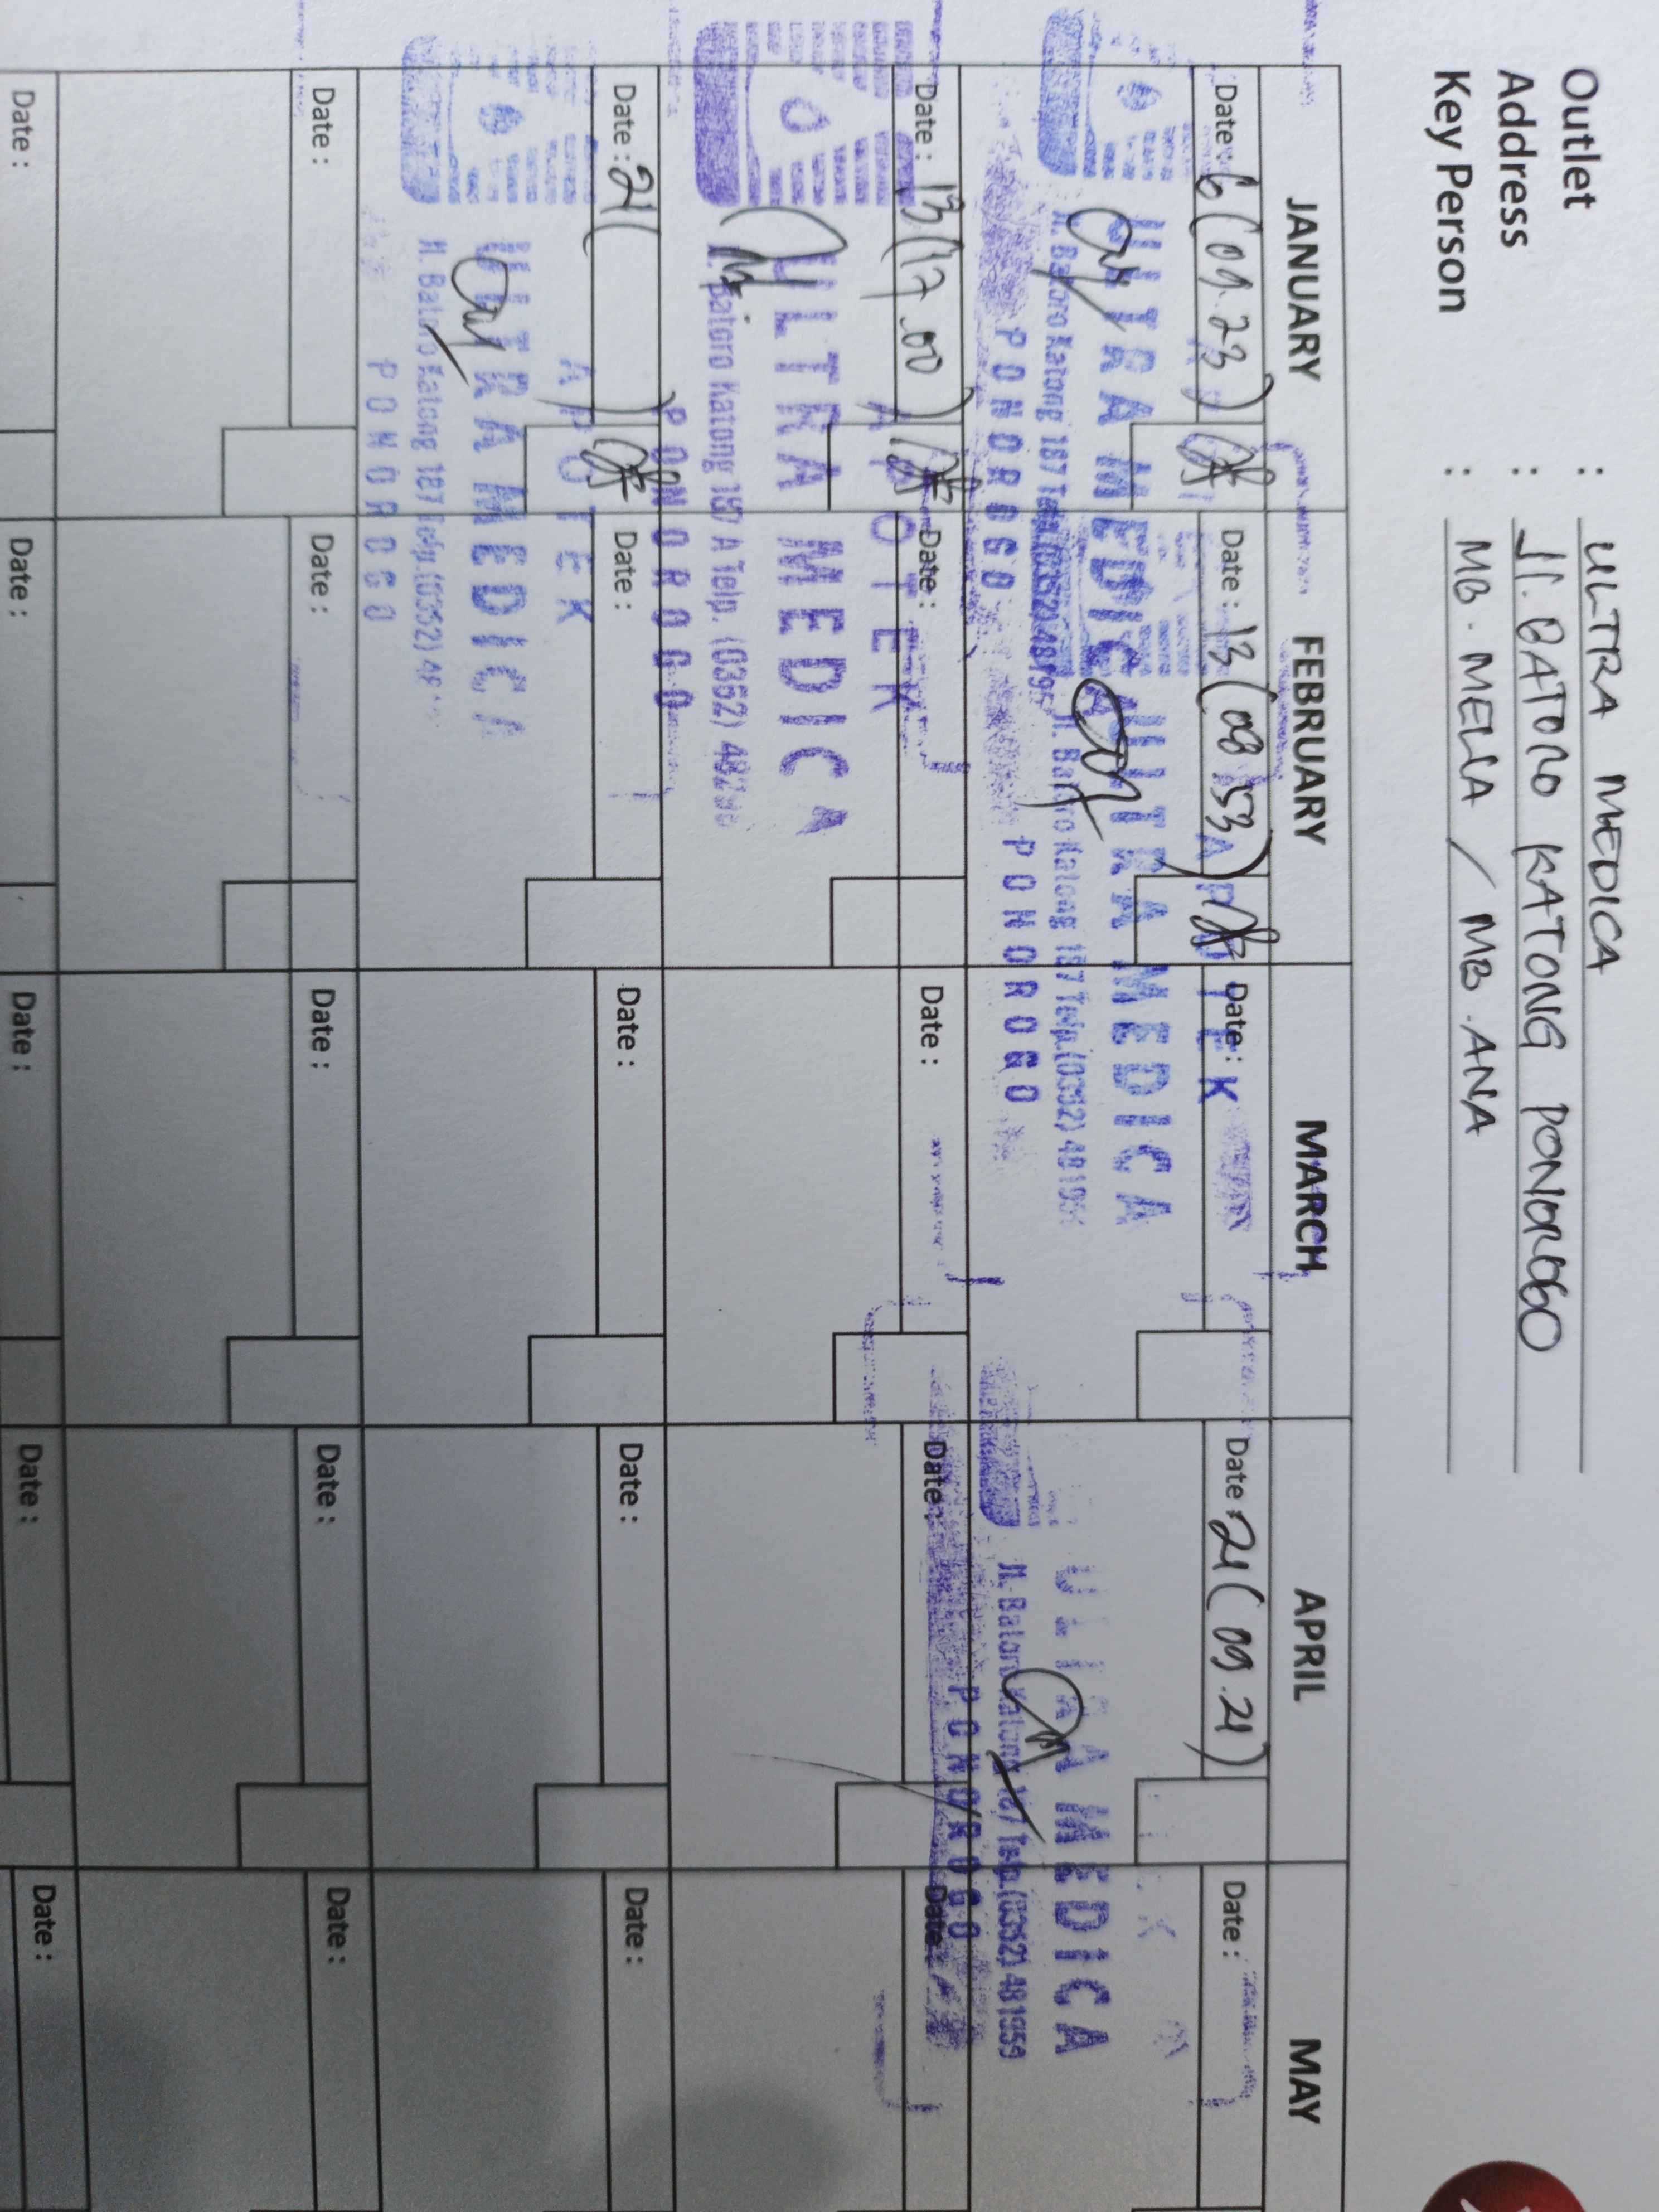 Outlet : ULTRA MEDICA
Address : Jl. BATORO KATONG PONOROGO
Key Person : MB. MELLA / MB. ANA
JANUARY FEBRUARY MARCH APRIL MAY
Date : 6 (09.23) Date : 13 (08 53) Date : Date : 21 (09.21) Date :
APOTEK
ULTRA MEDICA ULTRA MEDICA ULTRA MEDICA
Jl. Batoro Katong 187 Telp. (0352) 48195 Jl. Batoro Katong 187 Telp. (0352) 48195 Jl. Batoro Katong 187 Telp. (0352) 481959
PONOROGO PONOROGO PONOROGO
Date : 13 (17.00) Date : Date : Date : Date :
APOTEK
ULTRA MEDICA
Jl. Batoro Katong 187 A Telp. (0352)
PONOROGO
Date : 21 ( ) Date : Date : Date : Date :
APOTEK
ULTRA MEDICA
Jl. Batoro Katong 187 Telp. (0352) 48
PONOROGO
Date : Date : Date : Date : Date :
Date : Date : Date : Date : Date :